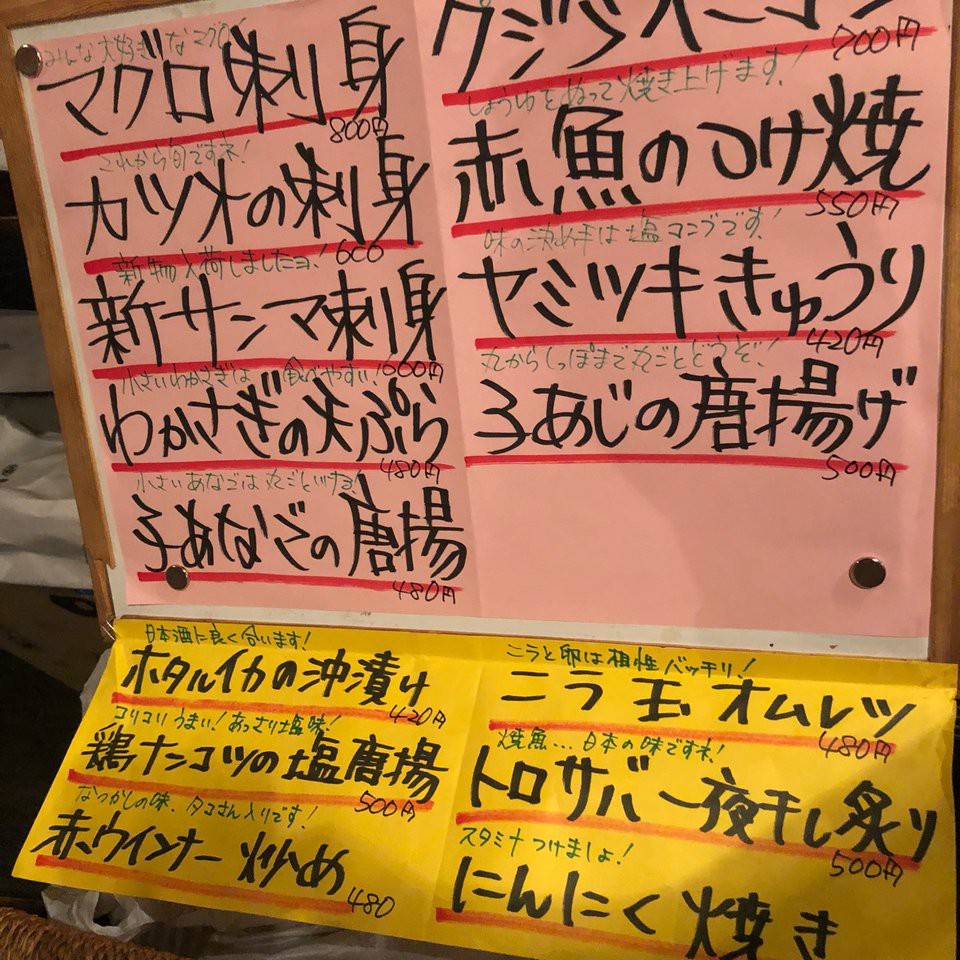 みんな大好きなマグロ
マグロ刺身
800円
これから旬ですネ!
カツオの刺身
600
新物入荷しましたヨ!
新サンマ刺身
600円
小さいわかさぎは 食べやすい!
わかさぎの天ぷら
480円
小さいあなごは丸ごといけるヨ!
子あなごの唐揚
480円
クジラベーコン
700円
しょうゆをぬって焼き上げます!
赤魚のつけ焼
550円
味の決め手は塩コンブです!
ヤミツキきゅうり
420円
丸からしっぽまで丸ごとどうぞ!
子あじの唐揚げ
500円
日本酒に良く合います!
ホタルイカの沖漬け
420円
コリコリうまい!あっさり塩味!
鶏ナンコツの塩唐揚
500円
なつかしの味、タコさん入りです!
赤ウインナー炒め
480
ニラと卵は相性バッチリ!
ニラ玉オムレツ
480円
焼魚…日本の味ですネ!
トロサバ一夜干し炙り
500円
スタミナつけましょ!
にんにく焼き